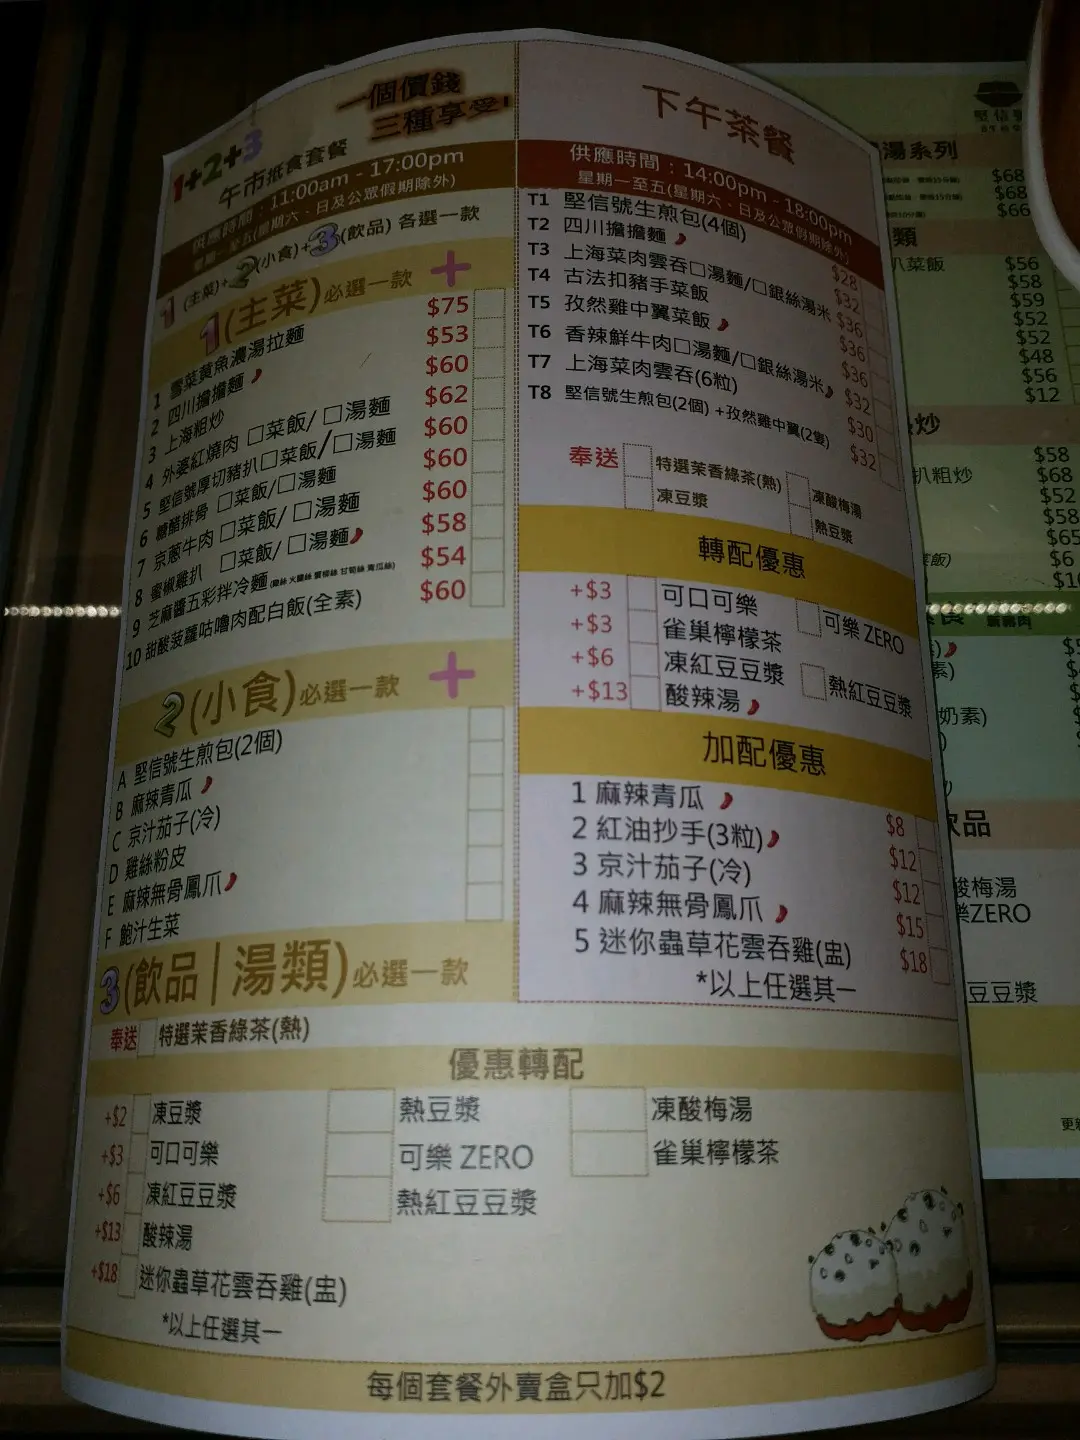 一個價錢
三種享受!
1+2+3
午市抵食套餐
供應時間：11:00am - 17:00pm
至五(星期六、日及公眾假期除外)
1(主菜)+2(小食)+3(飲品) 各選一款
1(主菜)必選一款 +
1 雪菜黃魚濃湯拉麵 $75
2 四川擔擔麵 $53
3 上海粗炒 $60
4 外婆紅燒肉 □菜飯/ □湯麵 $62
5 堅信號厚切豬扒□菜飯/□湯麵 $60
6 糖醋排骨 □菜飯/□湯麵 $60
7 京蔥牛肉 □菜飯/ □湯麵 $60
8 蜜椒雞扒 □菜飯/ □湯麵 $58
9 芝麻醬五彩拌冷麵 $54
10 甜酸菠蘿咕嚕肉配白飯(全素) $60
2(小食)必選一款 +
A 堅信號生煎包(2個)
B 麻辣青瓜
C 京汁茄子(冷)
D 雞絲粉皮
E 麻辣無骨鳳爪
F 鮑汁生菜
3(飲品|湯類)必選一款
奉送 特選茉香綠茶(熱)
優惠轉配
+$2 凍豆漿 熱豆漿 凍酸梅湯
+$3 可口可樂 可樂 ZERO 雀巢檸檬茶
+$6 凍紅豆豆漿 熱紅豆豆漿
+$13 酸辣湯
+$18 迷你蟲草花雲吞雞(盅)
*以上任選其一
每個套餐外賣盒只加$2
下午茶餐
供應時間：14:00pm - 18:00pm
星期一至五(星期六、日及公眾假期除外)
T1 堅信號生煎包(4個) $28
T2 四川擔擔麵 $32
T3 上海菜肉雲吞□湯麵/□銀絲湯米 $36
T4 古法扣豬手菜飯 $36
T5 孜然雞中翼菜飯 $36
T6 香辣鮮牛肉□湯麵/□銀絲湯米 $32
T7 上海菜肉雲吞(6粒) $30
T8 堅信號生煎包(2個) +孜然雞中翼(2隻) $32
奉送 特選茉香綠茶(熱) 凍酸梅湯
凍豆漿 熱豆漿
轉配優惠
+$3 可口可樂 可樂 ZERO
+$3 雀巢檸檬茶
+$6 凍紅豆豆漿 熱紅豆豆漿
+$13 酸辣湯
加配優惠
1 麻辣青瓜 $8
2 紅油抄手(3粒) $12
3 京汁茄子(冷) $12
4 麻辣無骨鳳爪 $15
5 迷你蟲草花雲吞雞(盅) $18
*以上任選其一
湯系列
$68
$68
$66
類
菜飯 $56
$58
$59
$52
$52
$48
$56
$12
炒
$58
扒粗炒 $68
$52
$58
$65
飯) $6
素)
奶素)
飲品
酸梅湯
ZERO
豆豆漿